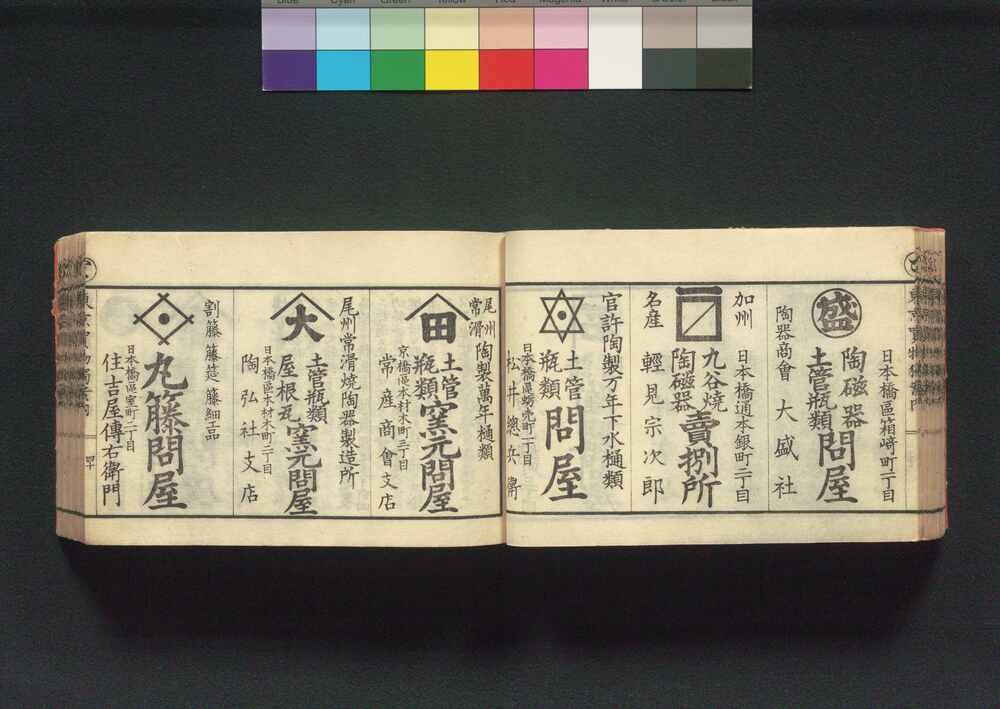 Blue Cyan Green Yellow Red Magenta White Black
日本橋區箱崎町二丁目
盛
陶磁器
土管瓶類
問屋
陶器商會 大盛社
加州
名産
日本橋通本銀町二丁目
九谷焼
陶磁器
賣捌所
輕見宗次郎
官許陶製万年下水樋類
土管
瓶類
問屋
日本橋區蛎壳町一丁目
松井總兵衛
尾州
常滑
陶製萬年樋類
田
土管
瓶類
窯元問屋
京橋區本材木町三丁目
常産商會支店
尾州常滑焼陶器製造所
大
土管瓶類
屋根瓦
窯元問屋
日本橋區本材木町二丁目
陶弘社支店
割籐 籐莚 籐細工品
丸籐問屋
日本橋區室町二丁目
住吉屋傳右衛門